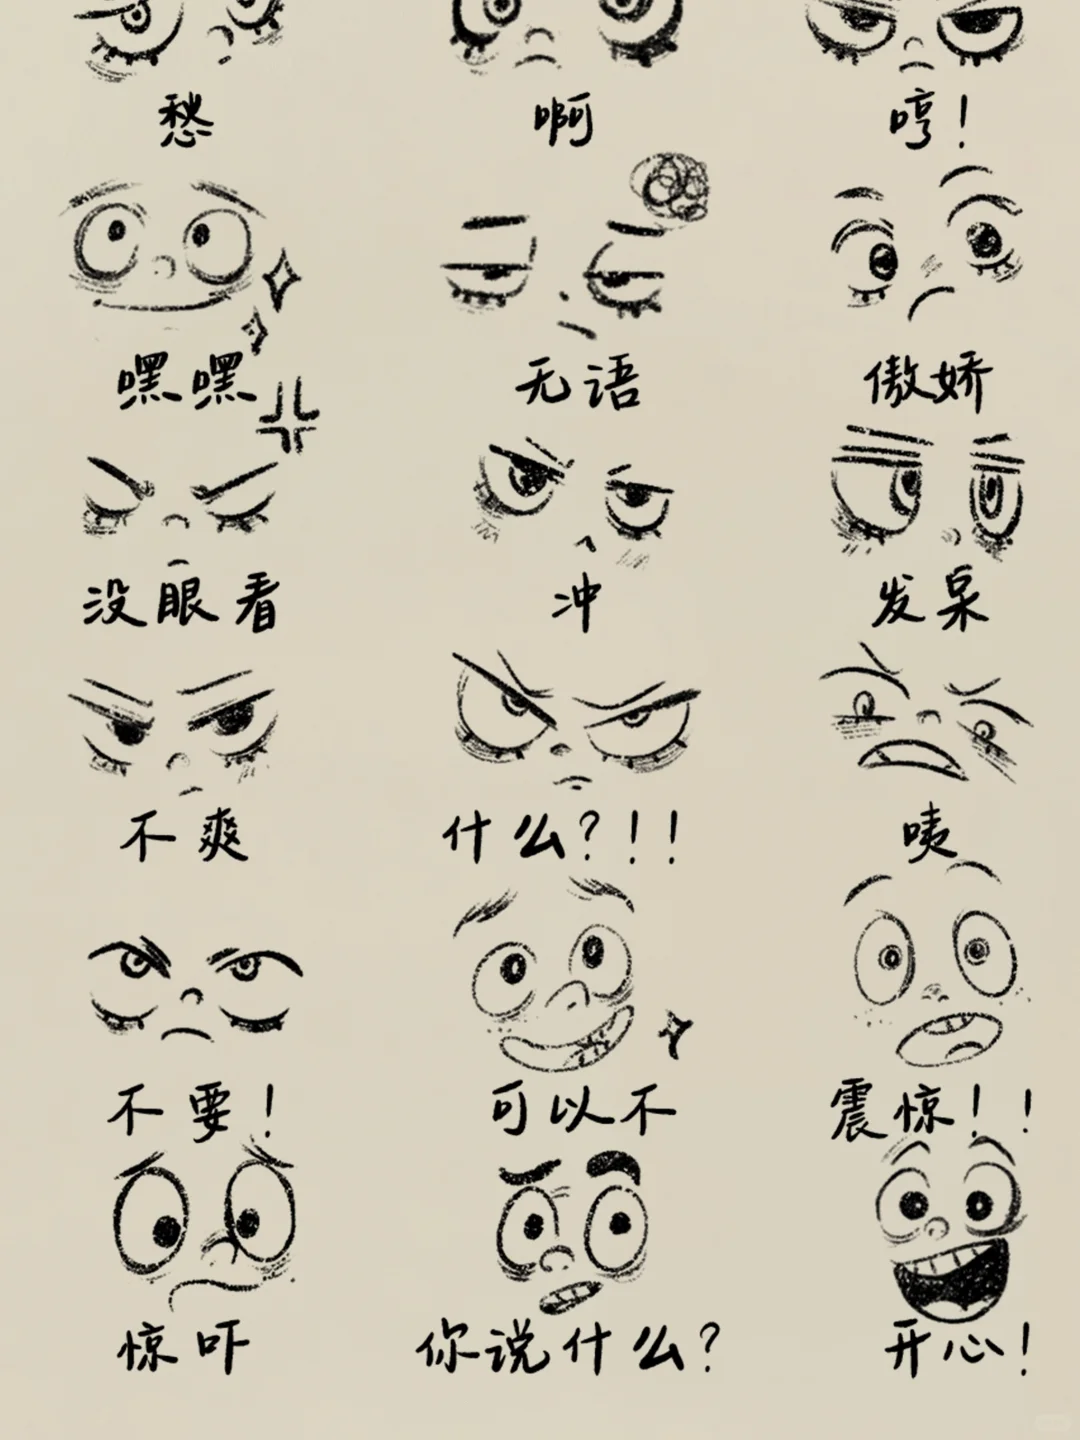 愁 啊 哼！
嘿嘿 无语 傲娇
没眼看 冲 发呆
不爽 什么？！！ 咦
不要！ 可以不 震惊！！
惊吓 你说什么？ 开心！